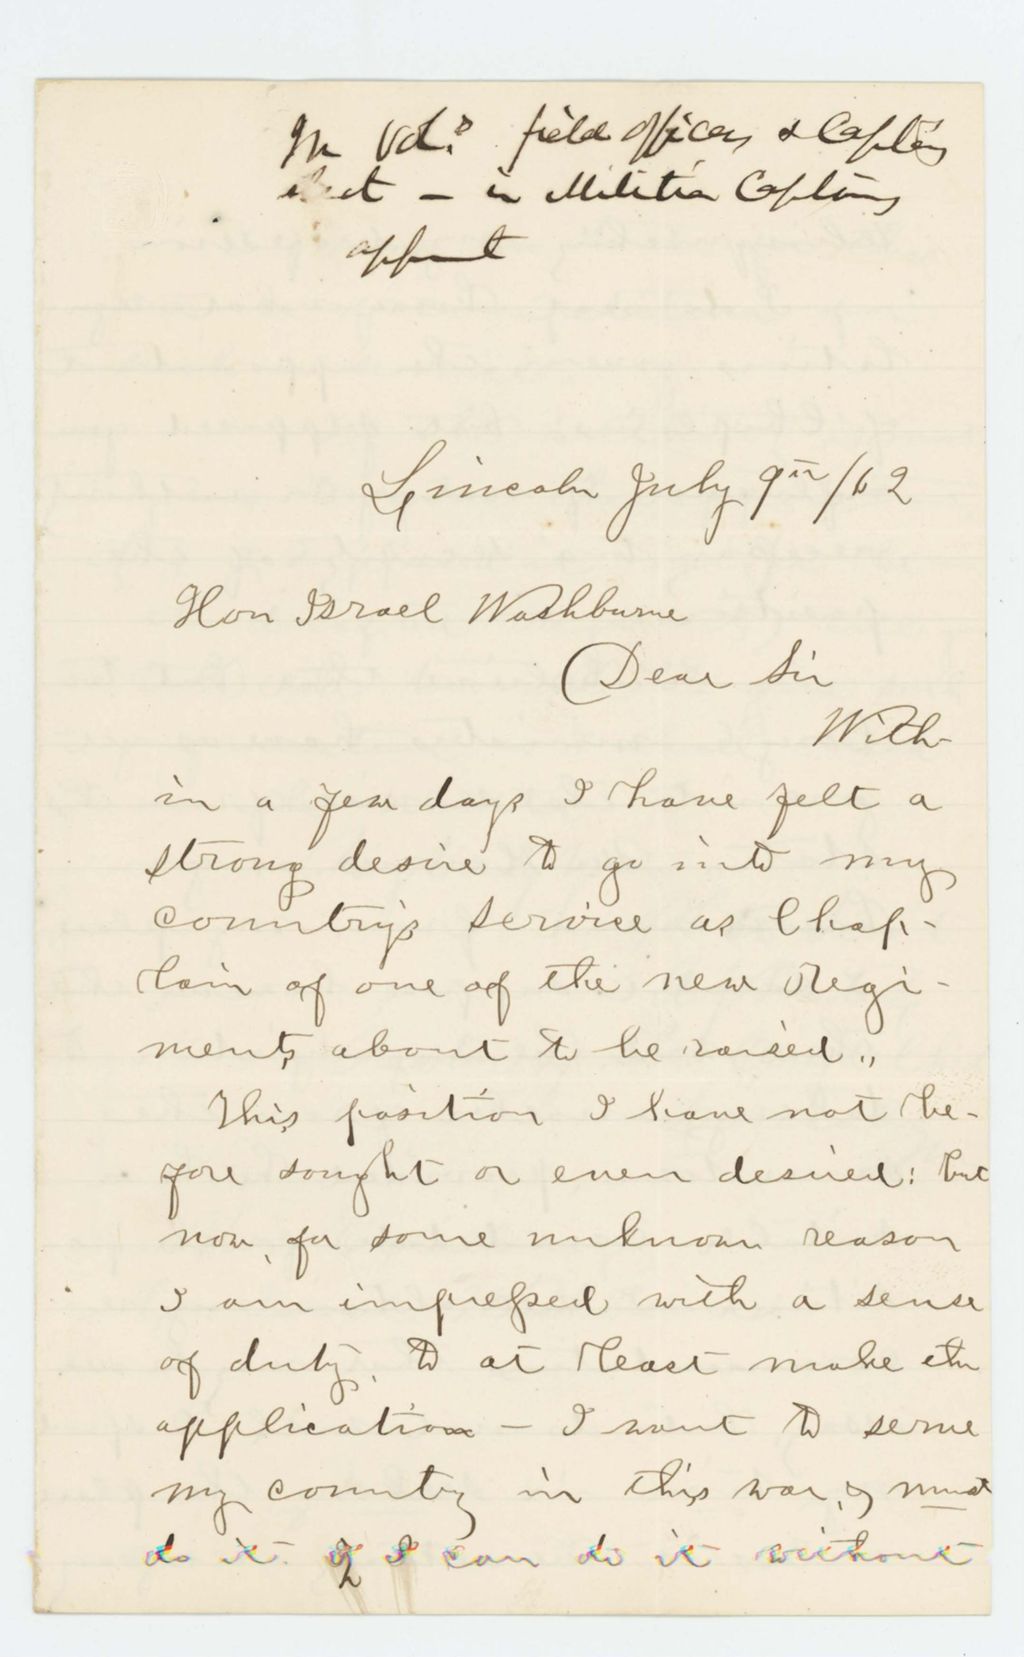 In Vols field officers & Captains
elect - in Militia Captains
appoint
Lincoln July 9th/62
Hon Israel Washburne
Dear Sir
With-
in a few days I have felt a
strong desire to go into my
country's service as Chap-
lain of one of the new Regi-
ments about to be raised.,
This position I have not be-
fore sought or even desired: but
now, for some unknown reason
I am impressed with a sense
of duty, to at least make the
application - I want to serve
my country in this war, & must
do it. If I can do it without